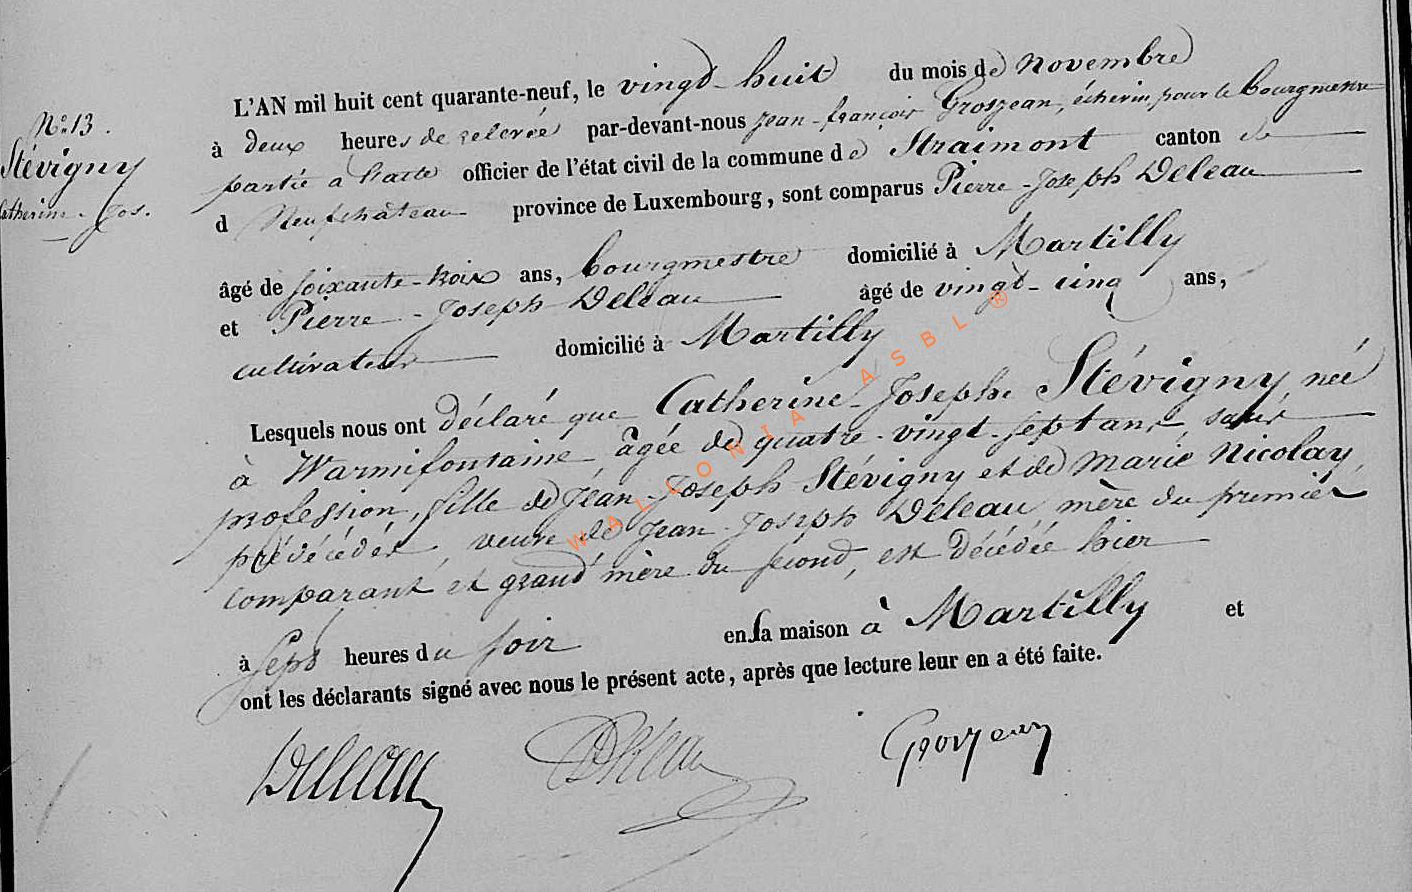 L'AN mil huit cent quarante-neuf, le vingt-huit du mois de novembre
N° 13.
à deux heures de relevée par-devant-nous Jean-françois Grosjean, échevin, pour le bourgmestre
Stévigny
partie à l'acte officier de l'état civil de la commune de Straimont canton de
Catherine-Jos.
d Neufchâteau province de Luxembourg, sont comparus Pierre-Joseph Deleau
âgé de soixante-trois ans, bourgmestre domicilié à Martilly
et Pierre-Joseph Deleau âgé de vingt-cinq ans,
cultivateur domicilié à Martilly
Lesquels nous ont déclaré que Catherine-Josephe Stévigny née
à Warmifontaine âgée de quatre-vingt-sept ans sans
profession, fille de Jean-Joseph Stévigny et de Marie Nicolay,
prédécédés, veuve de Jean-Joseph Deleau mère du premier
comparant et grand'mère du second, est décédée hier
à sept heures du soir en sa maison à Martilly et
ont les déclarants signé avec nous le présent acte, après que lecture leur en a été faite.
Deleau Deleau Grosjean
WALLONIA ASBL ®